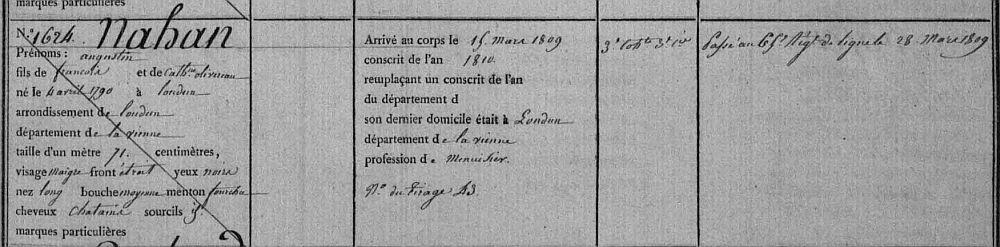 marques particulières
N° 1624. Nahan
Prénoms : augustin
fils de francois et de Cath.ne oliverau
né le 4 avril 1790 à loudun
arrondissement de loudun
département de la vienne
taille d'un mètre 71. centimètres,
visage maigre front étroit yeux noirs
nez long bouche moyenne menton fourchu
cheveux chatains sourcils id
marques particulières
Arrivé au corps le 15 mars 1809
conscrit de l'an 1810.
remplaçant un conscrit de l'an
du département d
son dernier domicile était à Loudun
département de la vienne
profession de Menuisier.
N° du tirage 43
Passé au 65e Régt de ligne le 28 Mars 1809